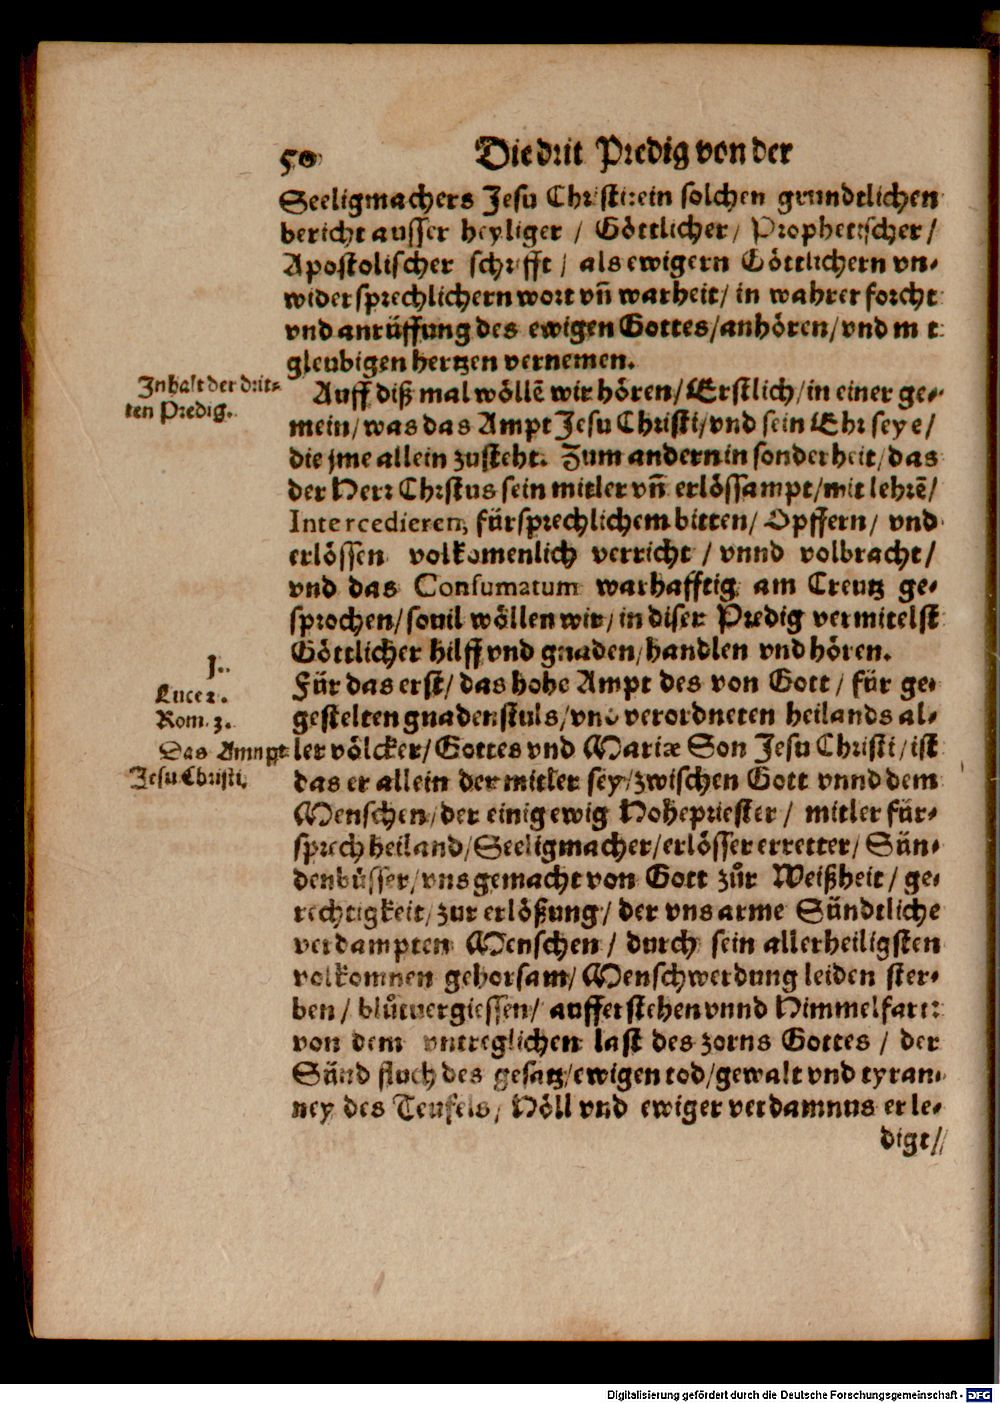 50 Die drit Predig von der
Seeligmachers Jesu Christi: ein solchen grundtlichen
bericht ausser heyliger / Göttlicher / Prophetischer /
Apostolischer schrifft / als ewigern Göttlichern vn-
widersprechlichern wort vñ warheit / in wahrer forcht
vnd anrüffung des ewigen Gottes / anhören / vnd mit
gleubigen hertzen vernemen.
Inhalt der drit-
ten Predig.
Auff diß mal wöllẽ wir hören / Erstlich / in einer ge-
mein / was das Ampt Jesu Christi / vnd sein Ehr seye /
die jme allein zusteht. Zum andern in sonderheit / das
der Herr Christus sein mitler vñ erlössampt / mit lehrẽ /
Intercedieren, fürsprechlichem bitten / Opffern / vnd
erlössen volkomenlich verricht / vnnd volbracht /
vnd das Consumatum warhafftig am Creutz ge-
sprochen / souil wöllen wir / in diser Predig vermitelst
Göttlicher hilff vnd gnaden / handlen vnd hören.
I.
Luce 2.
Rom. 3.
Das Ampt
Jesu Christi.
Für das erst / das hohe Ampt des von Gott / für ge-
gestelten gnadenstuls / vnd verordneten heilands al-
ler völcker / Gottes vnd Mariæ Son Jesu Christi / ist
das er allein der mitler sey / zwischen Gott vnnd dem
Menschen / der einig ewig Hohepriester / mitler für-
sprech heiland / Seeligmacher / erlösser erretter / Sün-
denbüsser / vns gemacht von Gott zůr Weißheit / ge-
rechtigkeit / zur erlößung / der vns arme Sündtliche
verdampten Menschen / durch sein allerheiligsten
volkomnen gehorsam / Menschwerdung leiden ster-
ben / blůtvergiessen / aufferstehen vnnd Himmelfart:
von dem vntreglichen last des zorns Gottes / der
Sünd fluch des gesatz / ewigen tod / gewalt vnd tyran-
ney des Teufels, Höll vnd ewiger verdamnus erle-
digt /
Digitalisierung gefördert durch die Deutsche Forschungsgemeinschaft - DFG